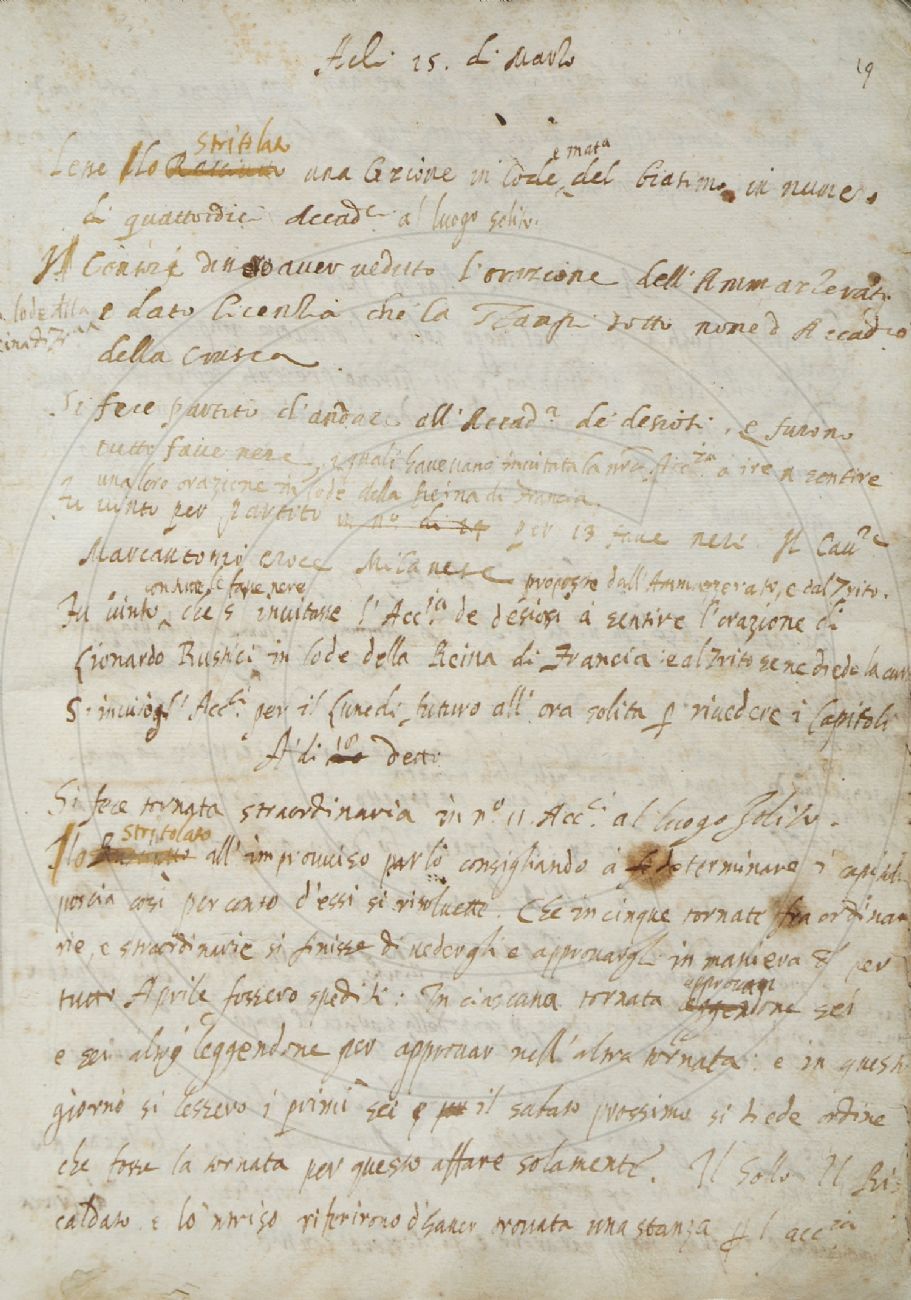 Adi 15. di Marzo
19
Stritolato
Lesse Lo Rasciutto una lezione in lode e mata del biasimo in numero
di quattordici Accad.ci al luogo solito.
Il Consiz disse aver veduto l'orazione dell'Ammazzerato
in lode della Reina di Francia
e dato licenzia che la stampi sotto nome d'Accad.co
della Crusca
Si fece partito d'andare all'Accad.a de' desiosi, e furono
tutte faue nere, i quali haueuano inuitata la nr̃a Acc.ia a ire a sentire
una loro orazione in lode della Reina di Francia.
Fu uinto per partito in n.o di 14 per 13 faue nere Il Cau.re
Marcantonio Croce Milanese proposto dall'Ammazzerato, e dal Trito.
con tutte le faue nere
Fu uinto che s'inuitasse l'Acc.ia de desiosi à sentire l'orazione di
Lionardo Rustici in lode della Reina di Francia: e al Trito se ne diede la cura
S'inuiò gl'Acc.ci per il lunedi futuro all'ora solita p riuedere i Capitoli
A di 18 detto
Si fece tornata straordinaria in n.o 11. Acc.ci al luogo solito.
Stritolato
Lo Rasciutto all'improuuiso parlò consigliando à determinare i capitoli
poscia così per conto d'essi si risoluette. Che in cinque tornate fra ordina
rie, e straordinarie si finisse di uedergli e approuargli in maniera che per
tutto Aprile fossero spediti: In ciascuna tornata approuan leggendone sei
e sei altri leggendone per approuar nell'altra tornata: e in questo
giorno si lessero i primi sei e per il sabato prossimo si diede ordine
che fosse la tornata per questo affare solamente. Il Sollo Il Ri
caldato e lo 'nriso riferirono d'hauer trouata una stanza p l'acc.ia